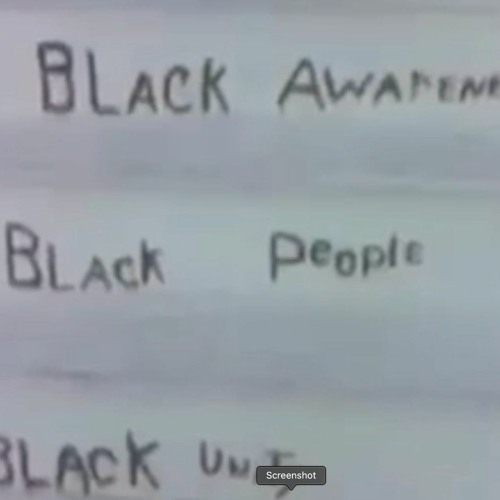 BLACK AWARENE
BLACK People
BLACK UNI
Screenshot